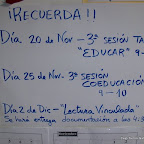 ¡RECUERDA!!
Día 20 de Nov - 3ª SESIÓN TA
"EDUCAR" 9-
Día 25 de Nov. 3ª SESIÓN
COEDUCACIÓN
9-10
Día 2 de Dic - "Lectura Vinculada"
Se hará entrega documentación a las 4:3